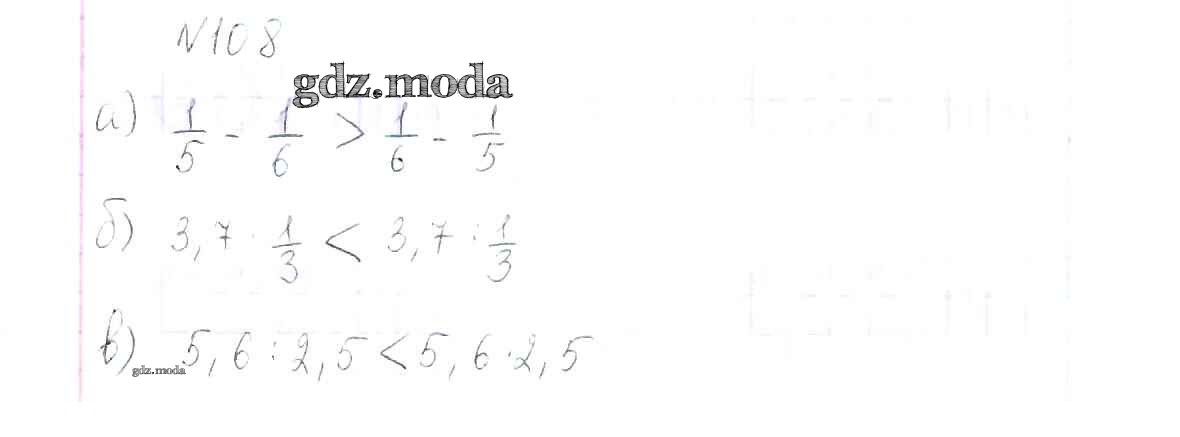 N108
gdz.moda
а) 1/5 - 1/6 > 1/6 - 1/5
б) 3,7 · 1/3 < 3,7 : 1/3
в) 5,6 : 2,5 < 5,6 · 2,5
gdz.moda